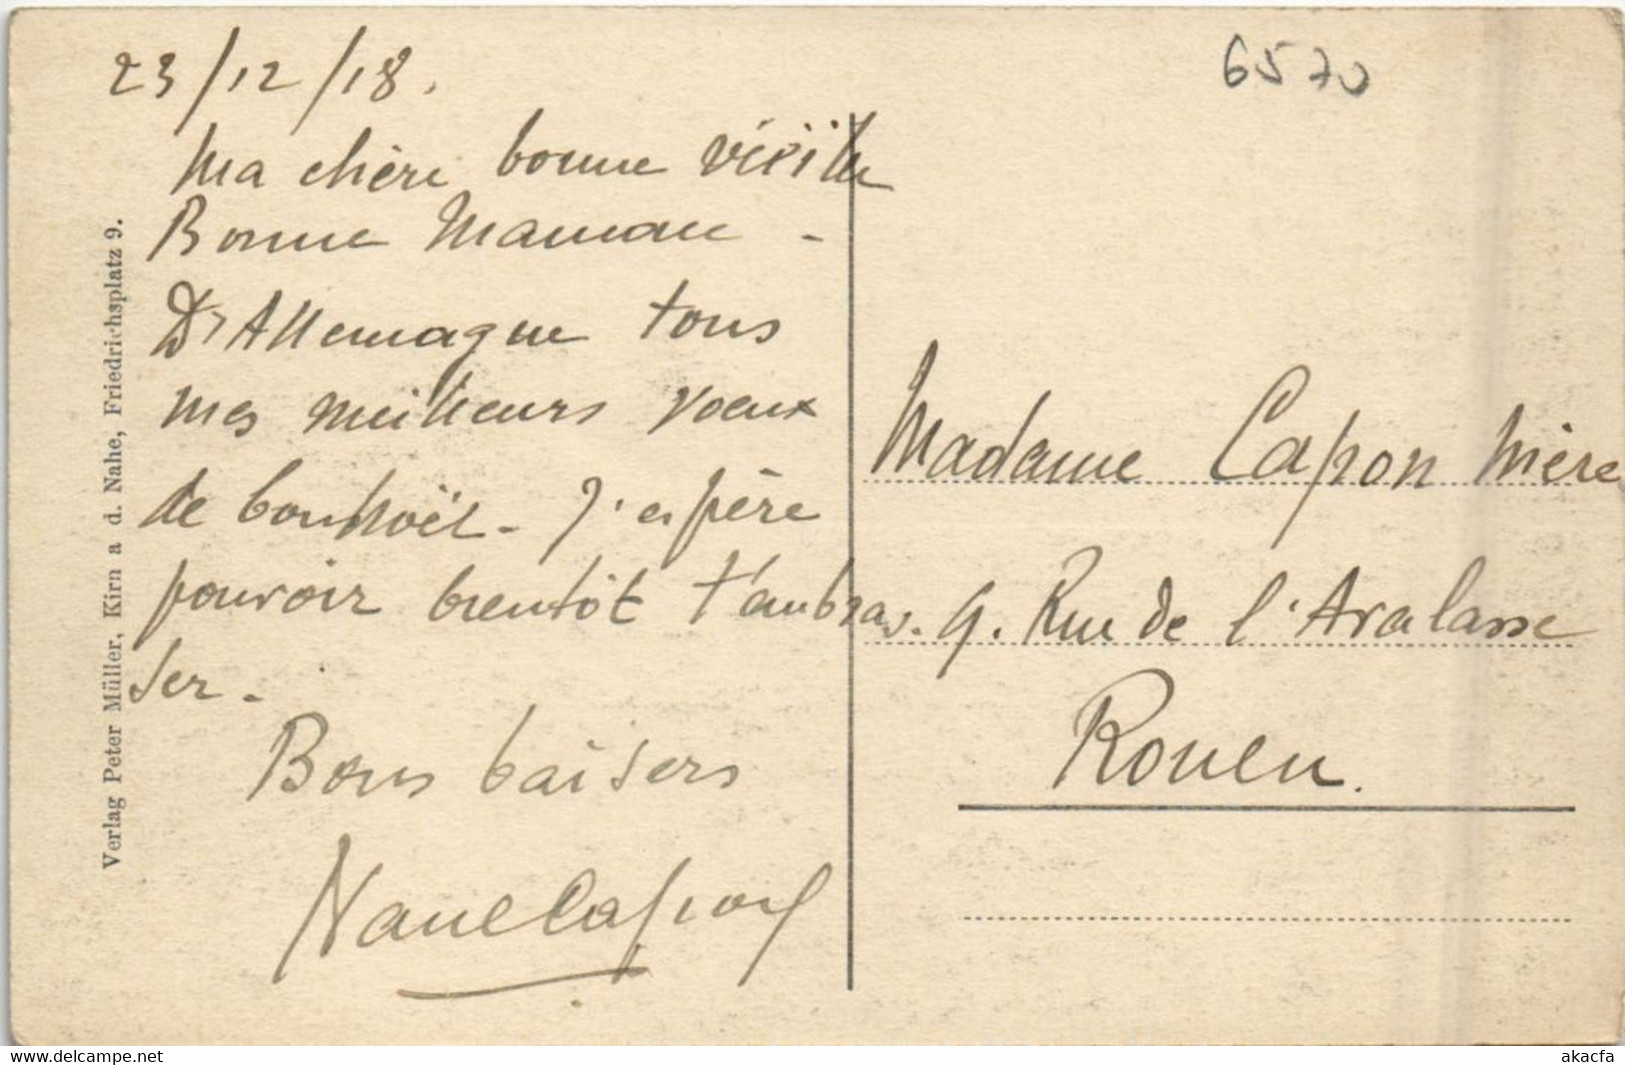 23/12/18.
Ma chère bonne vieille
Bonne Maman -
D'Allemagne tous
mes meilleurs voeux
de bon Noël - J'espère
pouvoir bientôt t'embras-
ser -
Bons baisers
Capon
6570
Madame Capon Mère
9. Rue de l'Avalasse
Rouen.
Verlag Peter Müller, Kirn a d. Nahe, Friedrichsplatz 9.
www.delcampe.net
akacfa